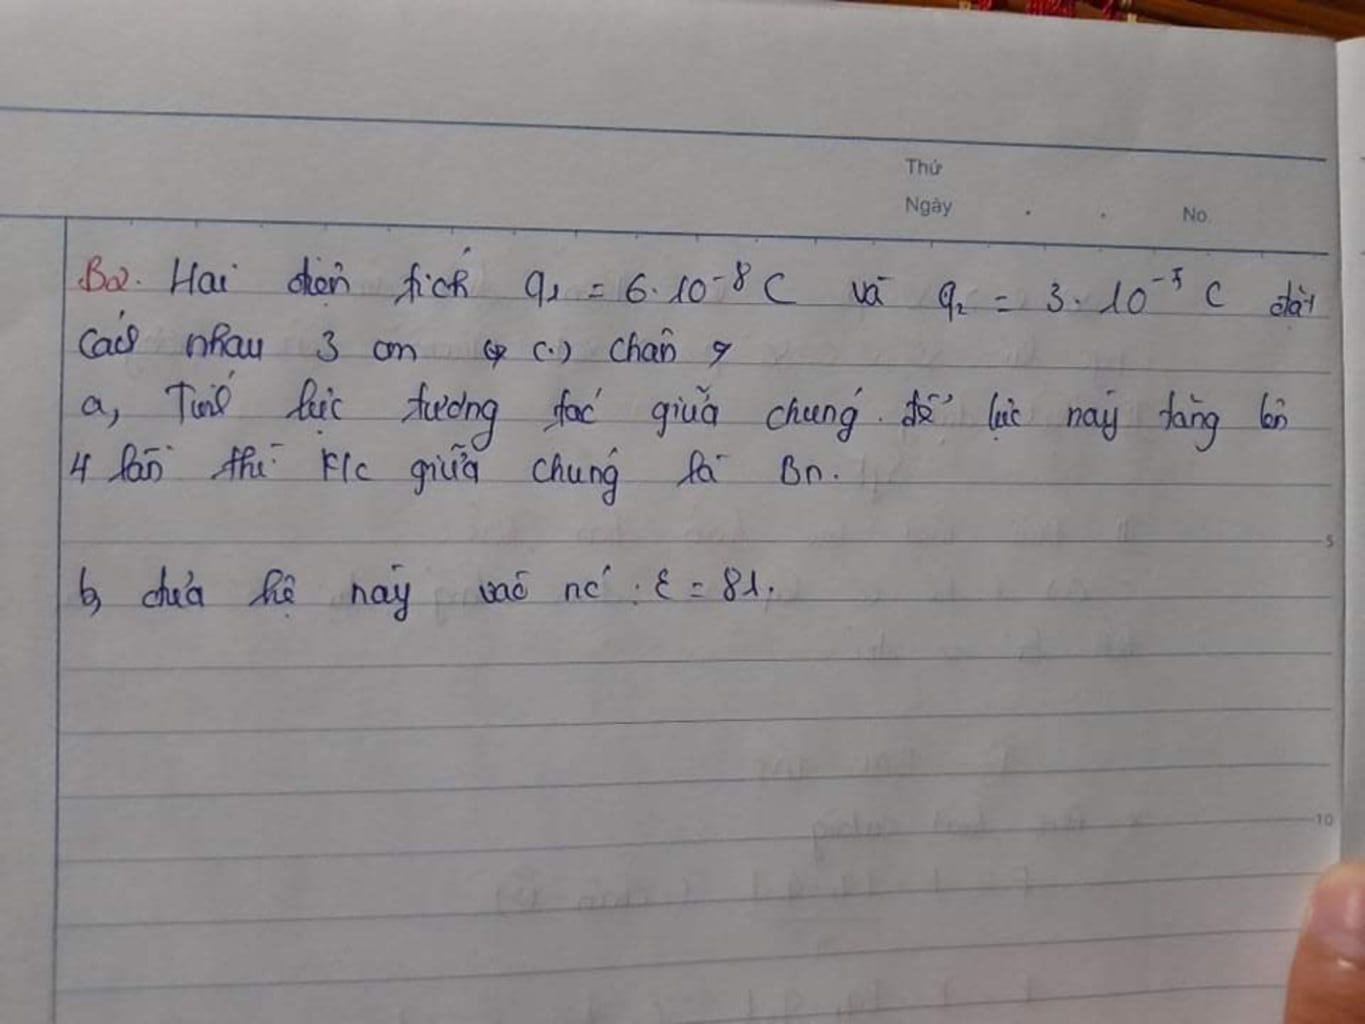 Thứ
Ngày . . No.
B2. Hai điện tích q₁ = 6.10⁻⁸ C và q₂ = 3.10 C đặt
cách nhau 3 cm (.) chân
a, Tính lực tương tác giữa chúng. để lực này tăng lên
4 lần thì k/c giữa chúng là Bn.
5
b, đưa hệ này vào nc : ε = 81.
10